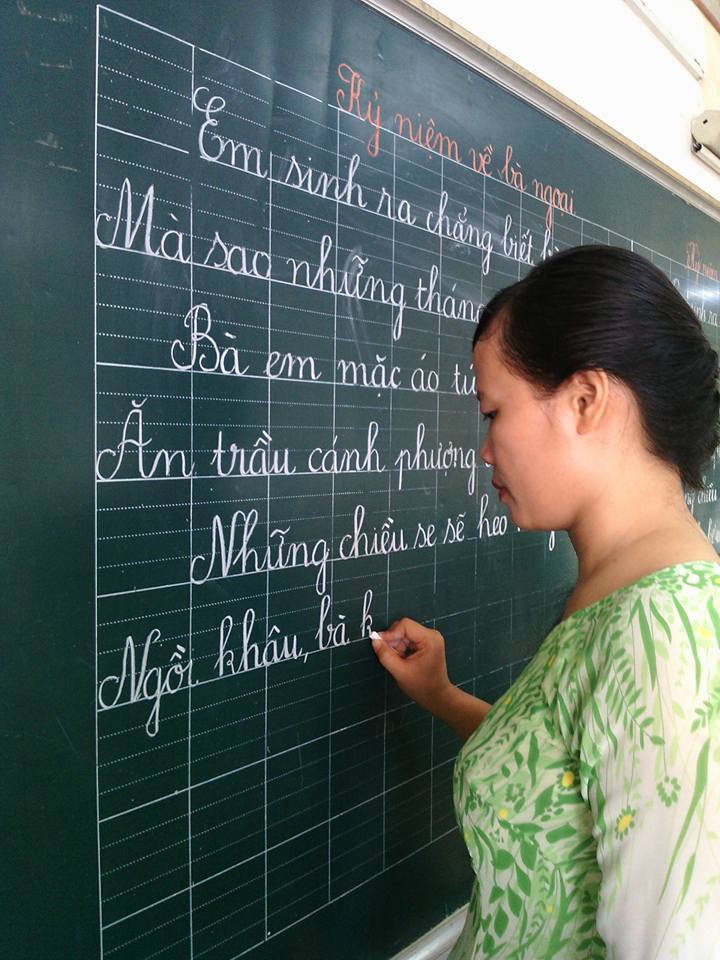 Kỷ niệm về bà ngoại
Em sinh ra chẳng biết
Mà sao những tháng
Bà em mặc áo
Ăn trầu cánh phượng
Những chiều se sẽ heo
Ngồi khâu, bà k